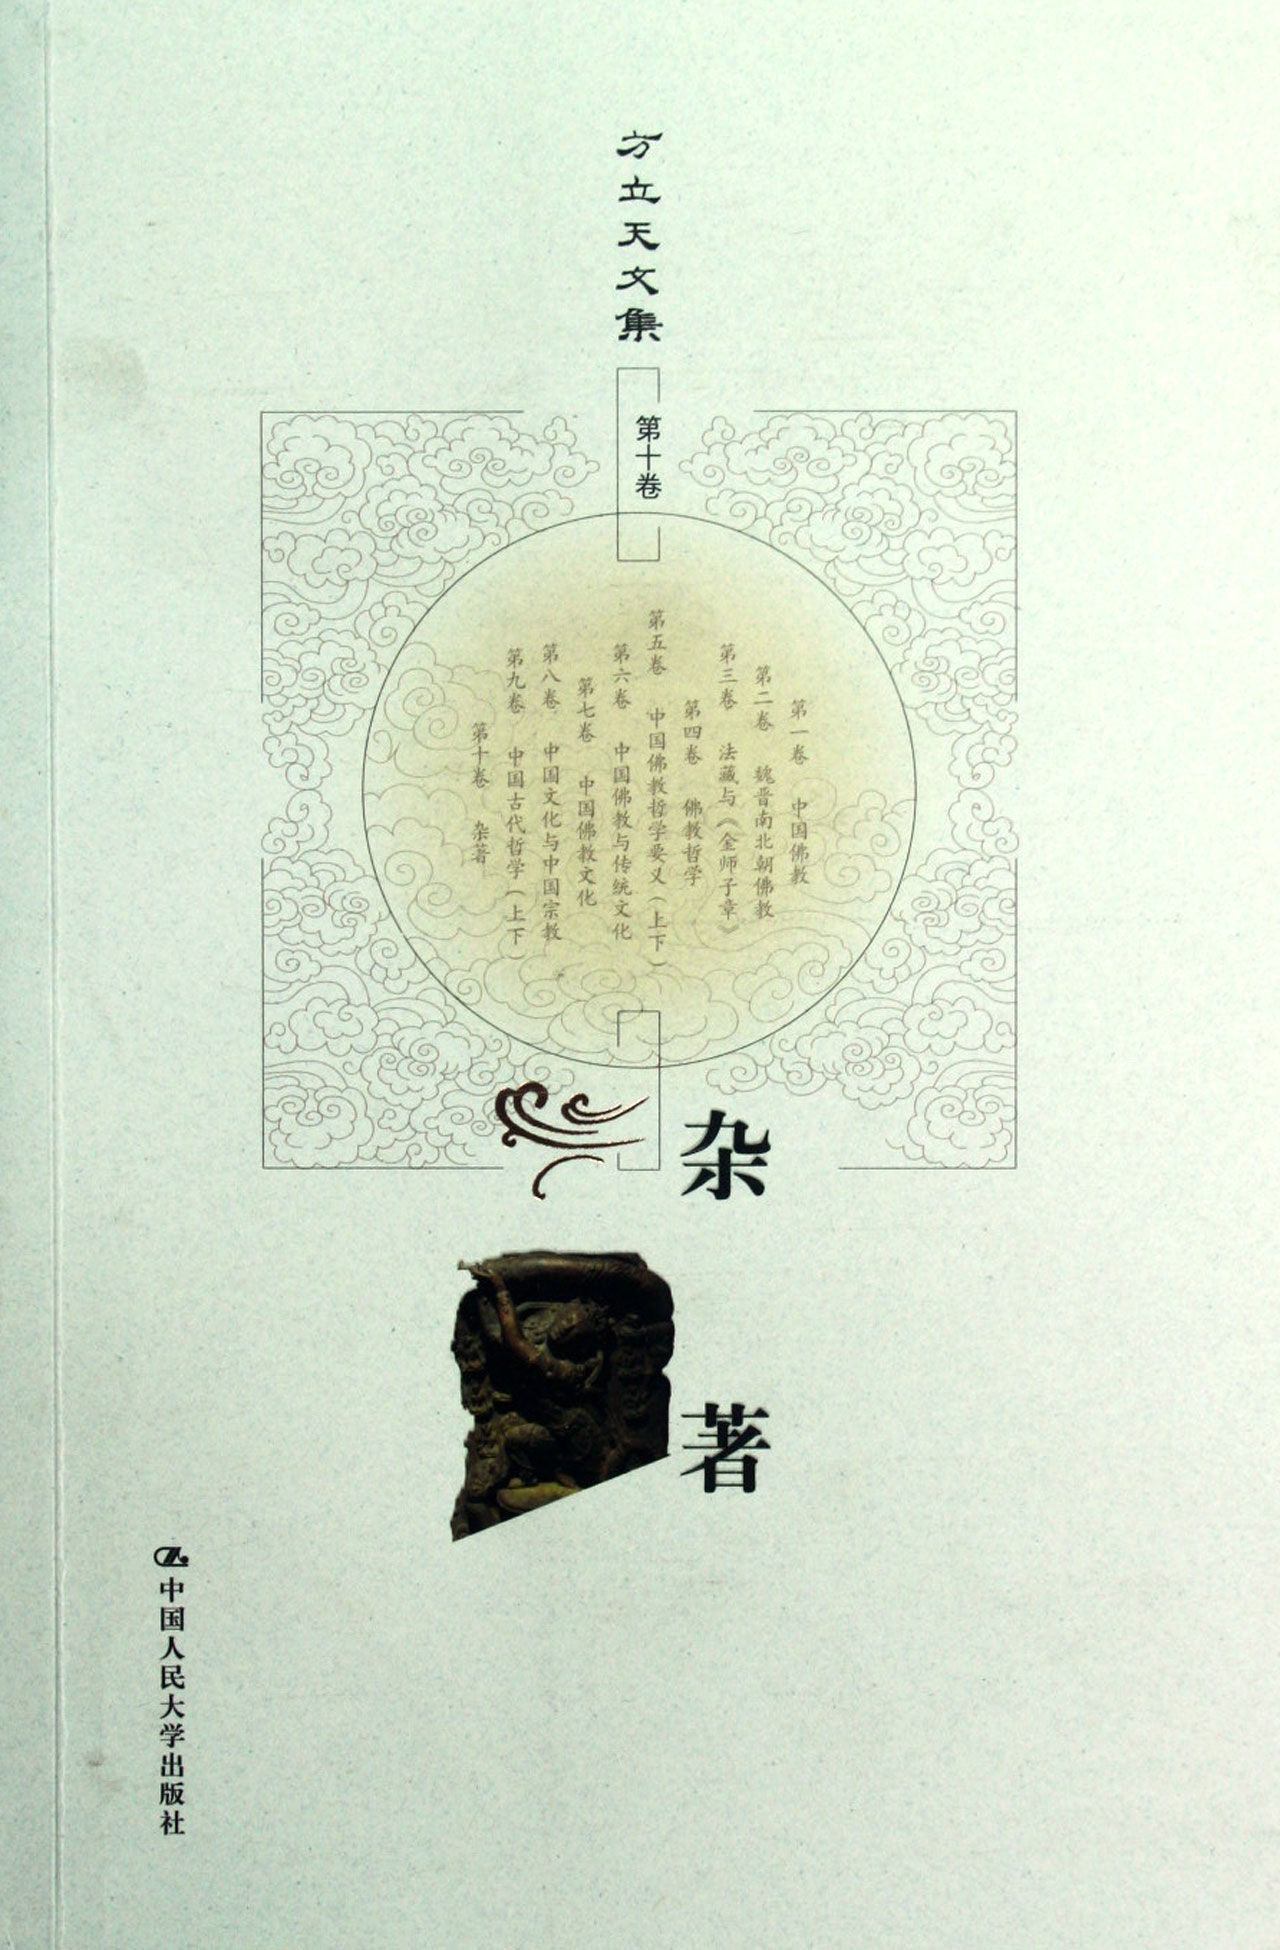 方立天文集
第十卷
第一卷 中国佛教
第二卷 魏晋南北朝佛教
第三卷 法藏与《金师子章》
第四卷 佛教哲学
第五卷 中国佛教哲学要义(上下)
第六卷 中国佛教与传统文化
第七卷 中国佛教文化
第八卷 中国文化与中国宗教
第九卷 中国古代哲学(上下)
第十卷 杂著
杂著
中国人民大学出版社